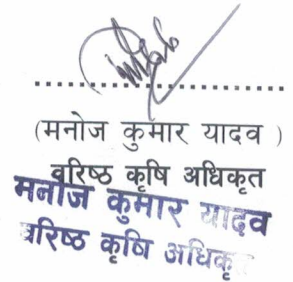 (मनोज कुमार यादव )
वरिष्ठ कृषि अधिकृत
मनोज कुमार यादव
वरिष्ठ कृषि अधिकृत